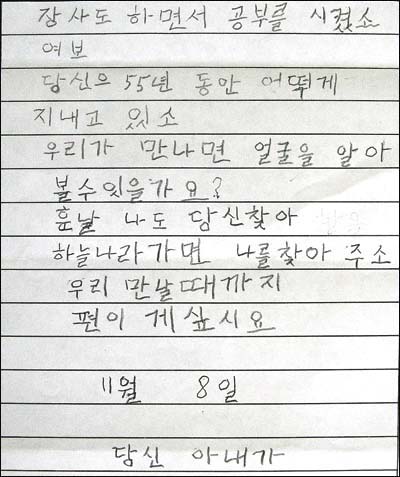 장사도 하면서 공부를 시켰소
여보
당신은 55년 동안 어떻게
지내고 있소
우리가 만나면 얼굴을 알아
볼수잇을가요?
훗날 나도 당신찾아
하늘나라가면 나를찾아 주소
우리 만날때까지
편이 게싶시요
11월 8일
당신 아내가